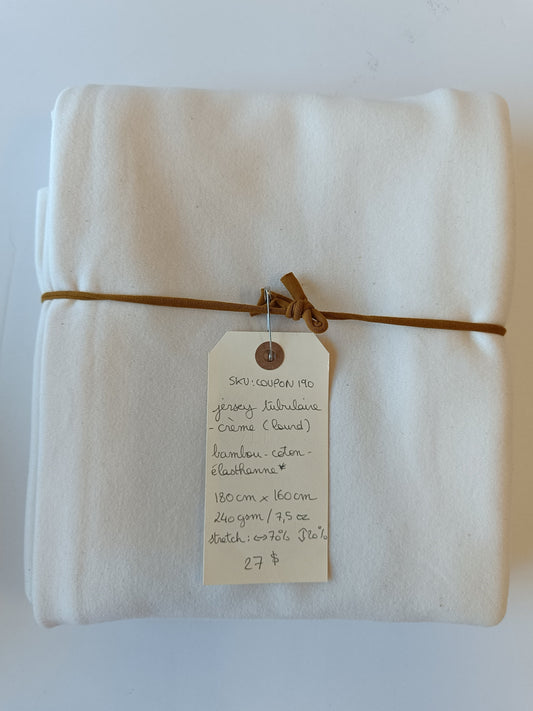 SKU: COUPON 190
jersey tubulaire
- crème (lourd)
bambou - coton -
élasthanne*
180 cm x 160 cm
240 gsm / 7,5 oz
stretch: ↔70% ↕20%
27 $